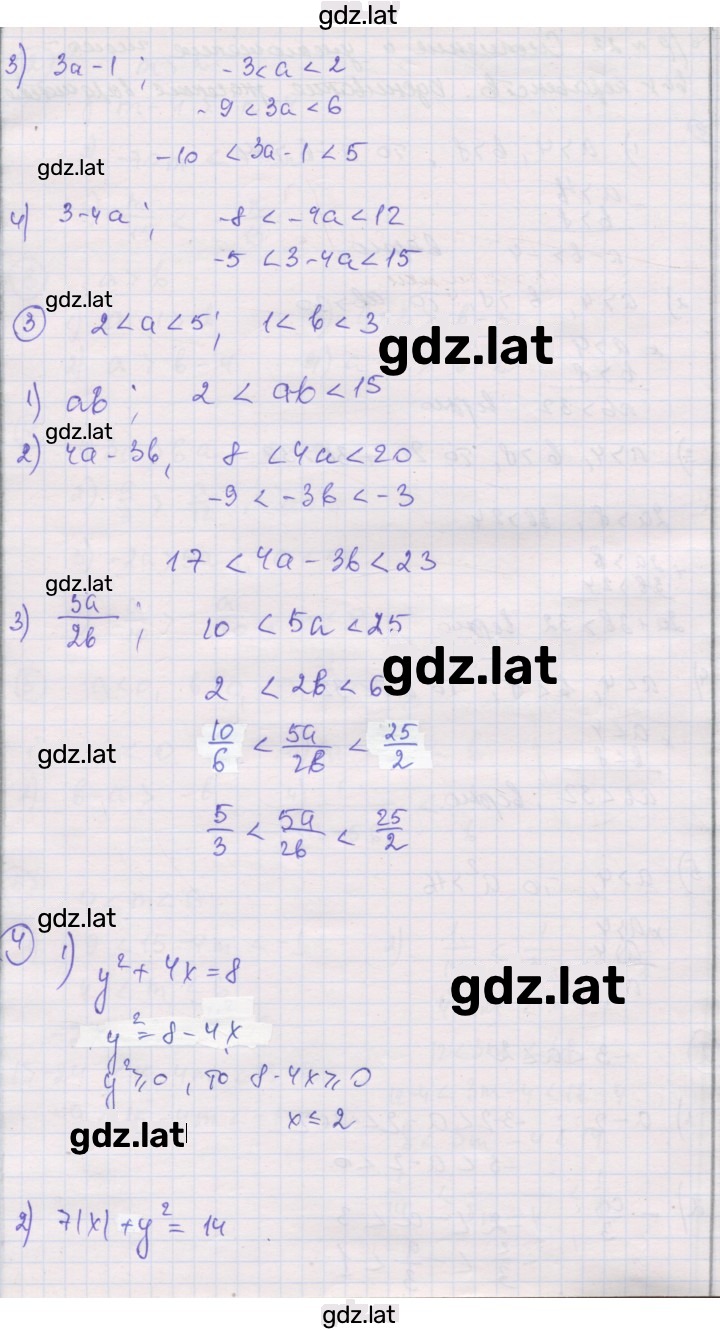 gdz.lat
3) 3a-1 ; -3<a<2
-9<3a<6
-10 <3a-1<5
gdz.lat
4) 3-4a ; -8<-4a<12
-5<3-4a<15
gdz.lat
3 2<a<5; 1<b<3
gdz.lat
1) ab ; 2 < ab < 15
gdz.lat
2) 4a-3b, 8 <4a<20
-9 < -3b < -3
17 <4a-3b<23
gdz.lat
3) 5a/2b ; 10 <5a<25
2 <2b<6
gdz.lat
10/6 < 5a/2b < 25/2
gdz.lat
5/3 < 5a/2b < 25/2
gdz.lat
4 1) y²+4x=8
gdz.lat
y²=8-4x
y²⩾0, то 8-4x⩾0
x≤2
gdz.lat
2) 7|x|+y²=14
gdz.lat